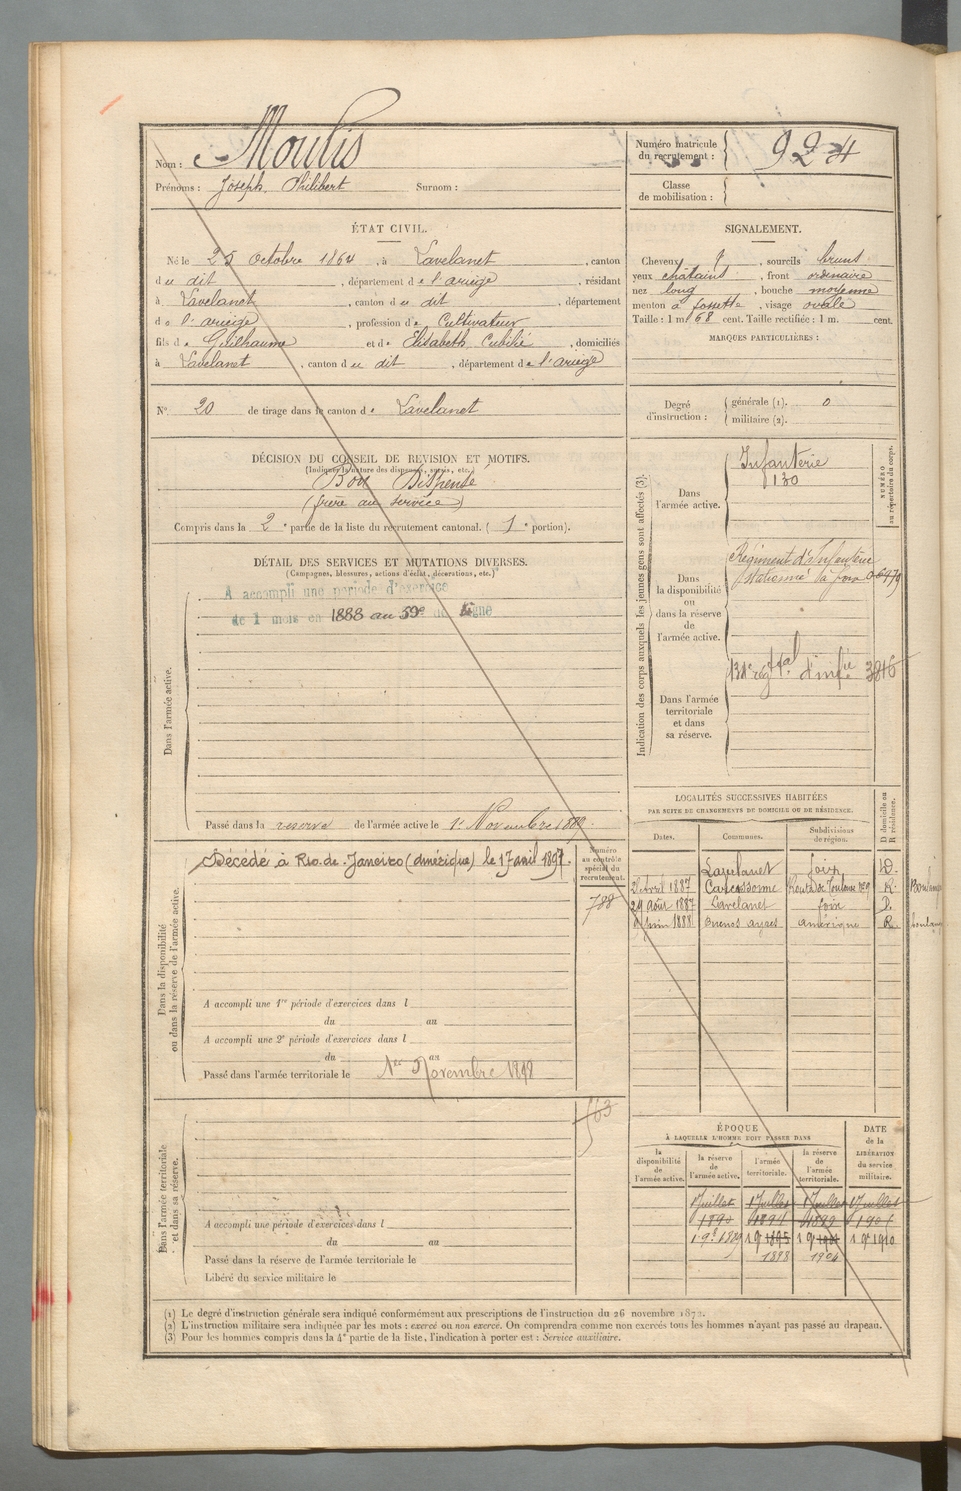 Nom : Moulis
Prénoms : Joseph Philibert Surnom :
Numéro matricule du recrutement : 924
Classe de mobilisation :
ÉTAT CIVIL.
Né le 25 Octobre 1864, à Lavelanet, canton
du dit, département de l'ariège, résidant
à Lavelanet, canton du dit, département
de l'ariège, profession de Cultivateur
fils de Guilhaume et de Elisabeth Cubilié, domiciliés
à Lavelanet, canton du dit, département de l'ariège
SIGNALEMENT.
Cheveux, sourcils bruns
yeux chatains, front ordinaire
nez long, bouche moyenne
menton à fossette, visage ovale
Taille : 1 m. 68 cent. Taille rectifiée : 1 m. cent.
MARQUES PARTICULIÈRES :
N° 20 de tirage dans le canton de Lavelanet
Degré d'instruction : générale (1). 0
militaire (2).
DÉCISION DU CONSEIL DE REVISION ET MOTIFS.
(Indiquer la nature des dispenses, sursis, etc.)
Bon Dispensé
(frère au service)
Compris dans la 2e partie de la liste du recrutement cantonal. (1e portion).
DÉTAIL DES SERVICES ET MUTATIONS DIVERSES.
(Campagnes, blessures, actions d'éclat, décorations, etc.)
Dans l'armée active.
A accompli une période d'exercice
de 1 mois en 1888 au 59e de ligne
Passé dans la réserve de l'armée active le 1r Novembre 1889
Indication des corps auxquels les jeunes gens sont affectés (3).
NUMÉRO au répertoire du corps.
Dans l'armée active.
Infanterie
130
Dans la disponibilité ou dans la réserve de l'armée active.
Régiment d'Infanterie
stationné à foix
Dans l'armée territoriale et dans sa réserve.
3816
LOCALITÉS SUCCESSIVES HABITÉES
PAR SUITE DE CHANGEMENTS DE DOMICILE OU DE RÉSIDENCE.
D domicile ou R résidence.
Dates. Communes. Subdivisions de région.
Lavelanet foix D.
2 Avril 1887 Carcassonne Route de Toulouse R.
29 Août 1887 Lavelanet foix D.
Juin 1888 Buenos ayres amérique R.
Dans la disponibilité ou dans la réserve de l'armée active.
Décédé à Rio de Janeiro (Amérique) le 17 avril 1897.
Numéro au contrôle spécial du recrutement.
788
A accompli une 1re période d'exercices dans l
du au
A accompli une 2e période d'exercices dans l
du au
Passé dans l'armée territoriale le 1er Novembre 1898
563
Dans l'armée territoriale et dans sa réserve.
A accompli une période d'exercices dans l
du au
Passé dans la réserve de l'armée territoriale le
Libéré du service militaire le
ÉPOQUE
À LAQUELLE L'HOMME DOIT PASSER DANS
DATE de la LIBÉRATION du service militaire.
la disponibilité de l'armée active. la réserve de l'armée active. l'armée territoriale. la réserve de l'armée territoriale.
1 Juillet 1 Juillet 1 Juillet 1 Juillet
1890
1 9bre 1889 1 9 1895 1 9 1 9bre 1910
1898 1904
(1) Le degré d'instruction générale sera indiqué conformément aux prescriptions de l'instruction du 26 novembre 1872.
(2) L'instruction militaire sera indiquée par les mots : exercé ou non exercé. On comprendra comme non exercés tous les hommes n'ayant pas passé au drapeau.
(3) Pour les hommes compris dans la 4e partie de la liste, l'indication à porter est : Service auxiliaire.